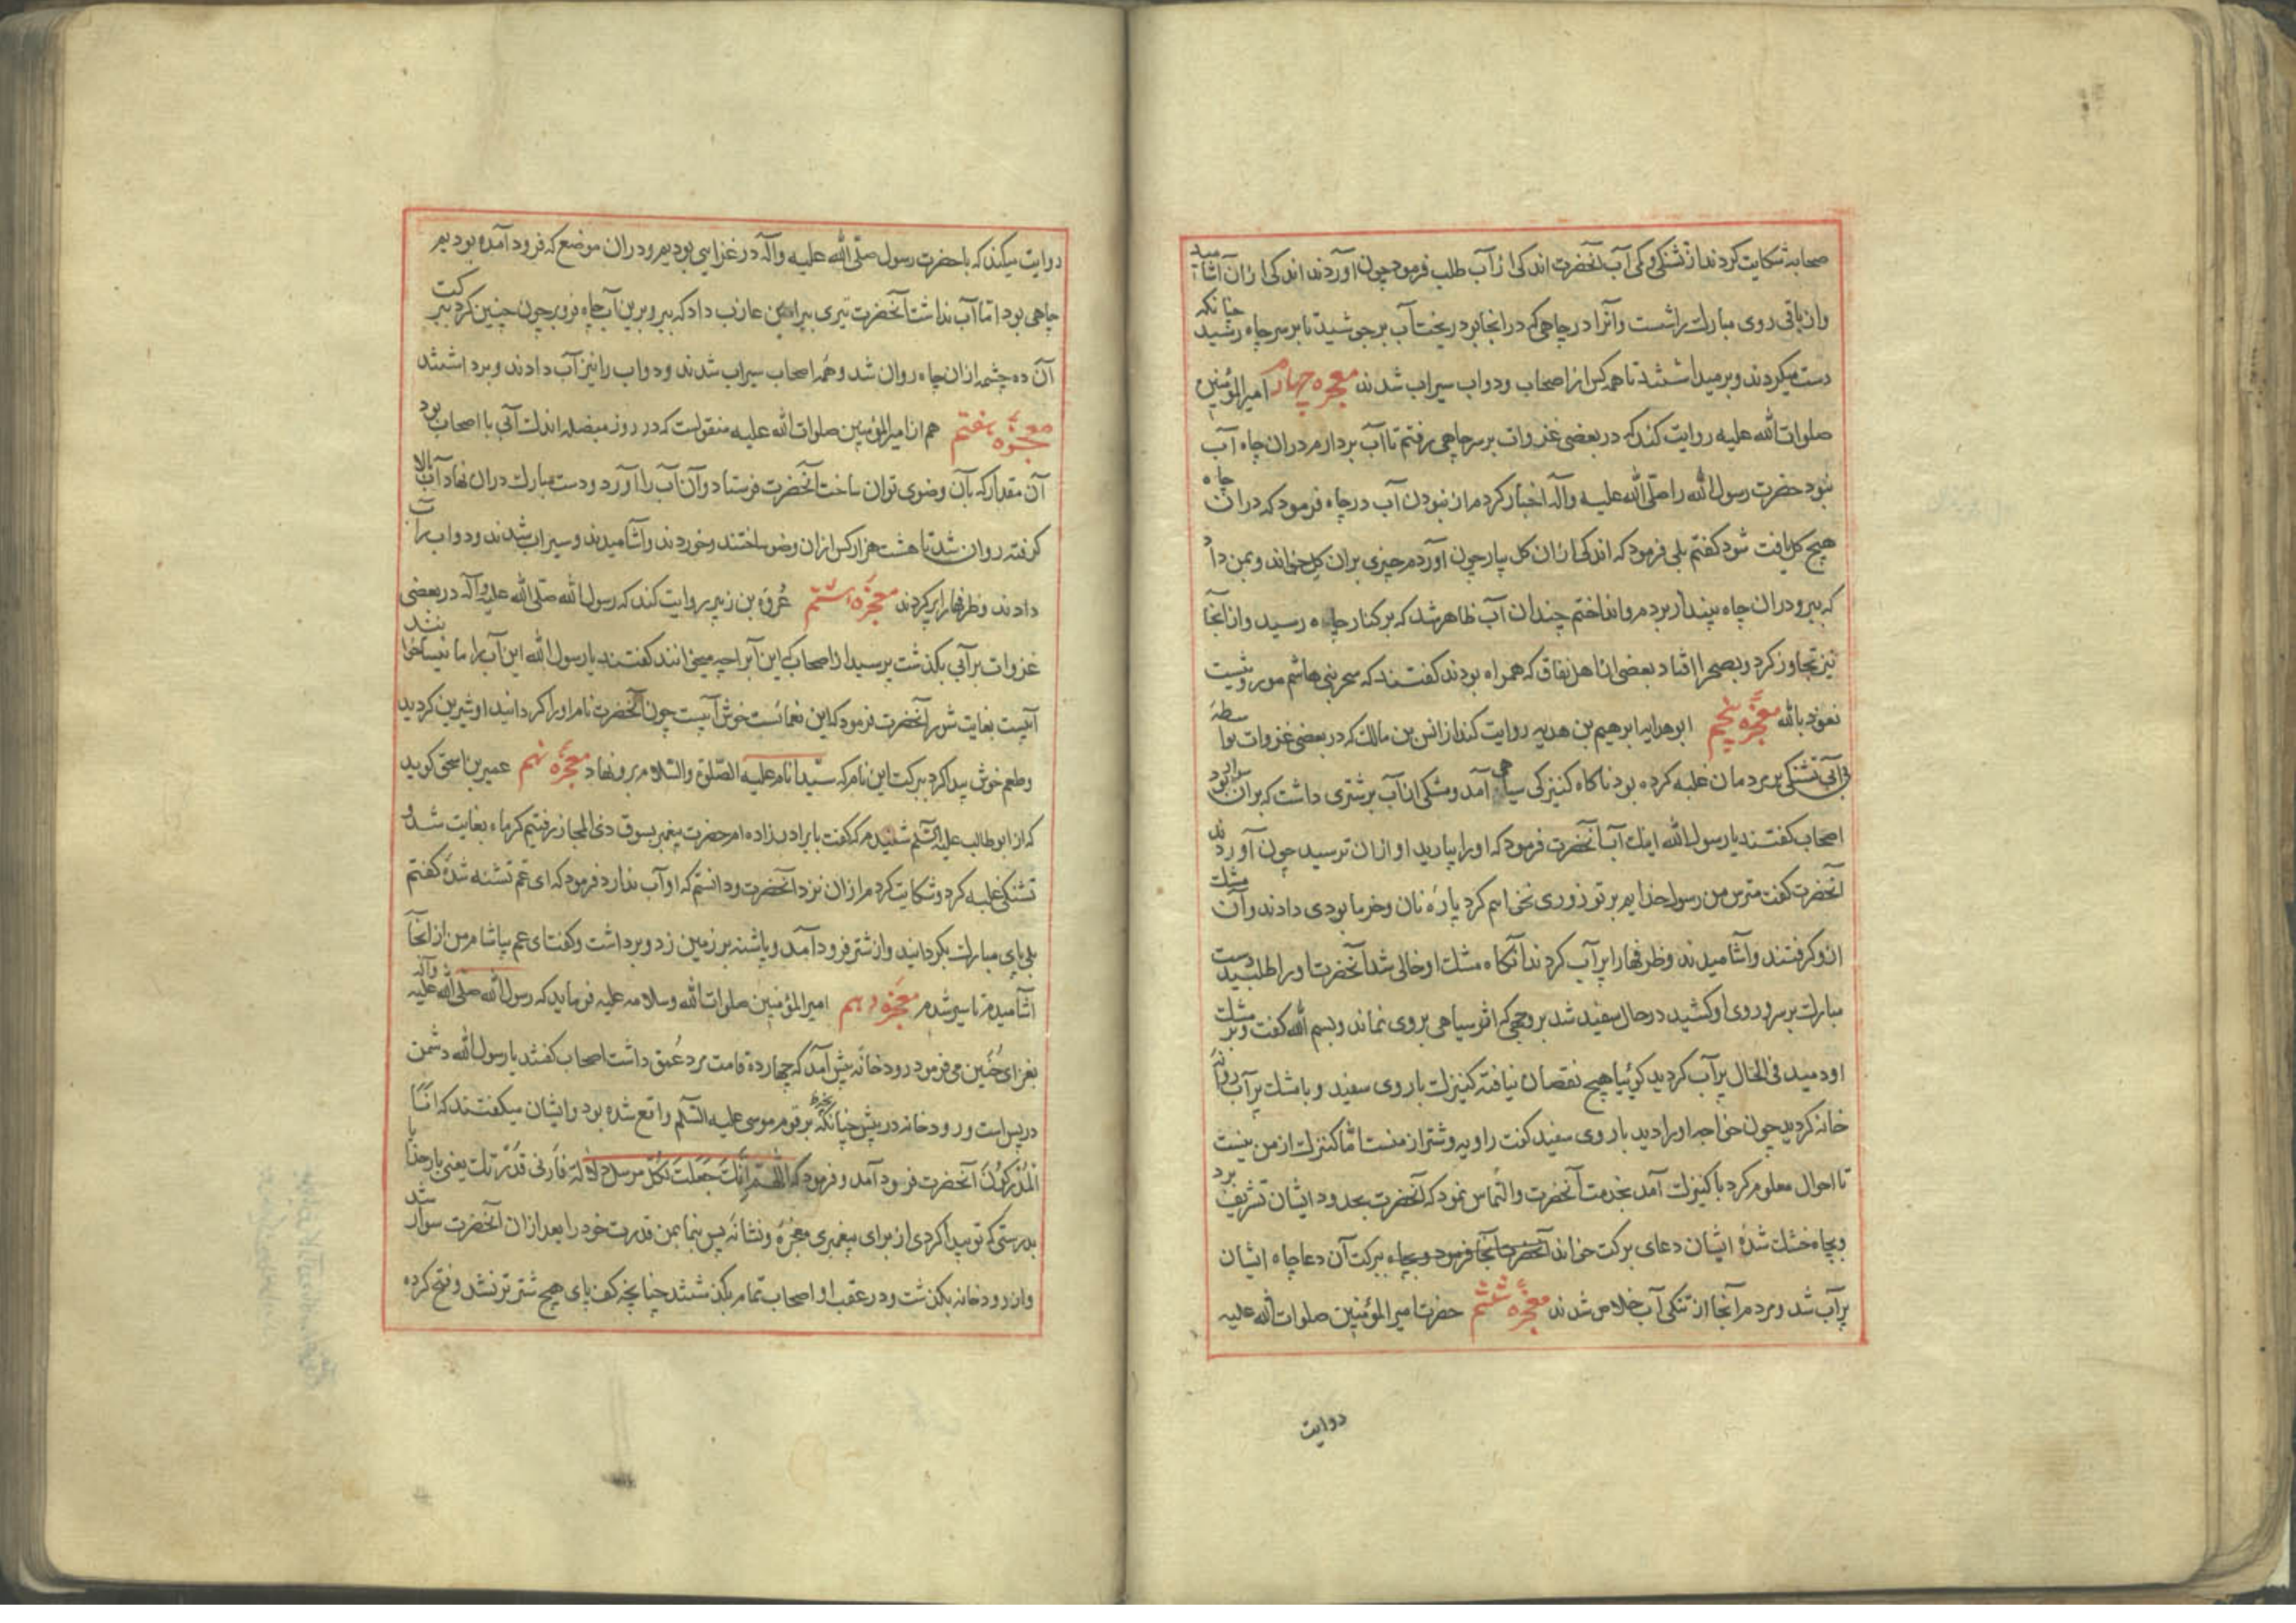 صحابه شکایت کردند از تشنگی و کمی آب آنحضرت اندکی از آب طلب فرمود چون آوردند اندکی ازان آشامید
وان باقی روی مبارک را شست وآنرا در چاهی که در انجا بود ریخت آب برجوشید تا بر سر چاه رسید چنانکه
دست میکردند وبرمیداشتند تا همه کس از اصحاب ودواب سیراب شدند معجزه چهارم امیرالمؤمنین
صلوات الله علیه روایت کند که در بعضی غزوات بر سر چاهی رفتم تا آب بردارم دران چاه آب
نبود حضرت رسول الله را صلّی الله علیه وآله اخبار کردم از نبودن آب در چاه فرمود که در ان چاه
هیچ کل یافت شود کفتم بلی فرمود که اندکی ازان کل بیار چون آوردم چیزی بران کل خواند وبمن داد
که ببر ودران چاه بینداز بردم وانداختم چندان آب ظاهر شد که بر کنار چاه رسید وازانجا
نیز تجاوز کرد وبصحرا افتاد بعضی از اهل نفاق که همراه بودند کفتند که سحر بنی هاشم موروثیست
نعوذ بالله معجزه پنجم ابوهدایه ابرهیم بن هدبه روایت کند از انس بن مالک که در بعضی غزوات بواسطهٔ
بی آبی تشنکی بر مردمان غلبه کرده بود ناکاه کنیزکی سیاهی آمد ومشکی ازآب بر شتری داشت که بران سوار بود
اصحاب کفتند یا رسول الله اینک آب آنحضرت فرمود که اورا بیارید او ازان ترسید چون آوردند
آنحضرت کفت مترس من رسول خدایم بر تو زوری نخواهم کرد پارهٔ نان وخرما بوی دادند وآن مشک
ازو کرفتند وآشامیدند وظرفهارا پر آب کردند آنکاه مشک او خالی شد آنحضرت اورا طلبید دست
مبارک بر سر وروی او کشید در حال سفید شد بروجهی که اثر سیاهی بروی نماند وبسم الله کفت وبر مشک
او دمید فی الحال پر آب کردید کوئیا هیچ نقصان نیافته کنیزک با روی سفید وبا مشک پر آب روانهٔ
خانه کردید چون خواجه اورا دید با روی سفید کفت راویه وشتر از منست امّا کنیزک از من نیست
تا احوال معلوم کرد با کنیزک آمد بخدمت آنحضرت والتماس نمود که آنحضرت بحدود ایشان تشریف برد
وبچاه خشک شدهٔ ایشان دعای برکت خواند آنحضرت آنجا فرمود وبچاه ببرکت آن دعا چاه ایشان
پر آب شد ومردم آنجا از تنکی آب خلاص شدند معجزه ششم حضرت امیرالمؤمنین صلوات الله علیه
روایت
روایت میکند که با حضرت رسول صلّی الله علیه وآله در غزایی بودیم ودران موضع که فرود آمده بودیم
چاهی بود امّا آب نداشت آنحضرت تیری ببراء بن عازب داد که ببر وبرین آب چاه فرو بر چون چنین کرد ببرکت
آن ده چشمه ازان چاه روان شد وهمه اصحاب سیراب شدند ودواب را نیز آب دادند وبرداشتند
معجزه هفتم هم از امیرالمؤمنین صلوات الله علیه منقولست که در روز میضاه اندک آبی با اصحاب بود
آن مقدار که بآن وضوی توان ساخت آنحضرت فرستاد وآن آب را آورد ودست مبارک دران نهاد آب بالا
کرفته روان شد تا هشت هزار کس ازان وضو ساختند وخوردند وآشامیدند وسیراب شدند ودواب را آب
دادند وظرفهارا پر کردند معجزه هشتم عُروة بن زبیر روایت کند که رسول الله صلّی الله علیه وآله در بعضی
غزوات بر آبی بکذشت پرسید از اصحاب که این آب را چه میخوانند کفتند یا رسول الله این آب را ما بیسان خوانند
آبیست بغایت شور آنحضرت فرمود که این نعمانست خوش آبیست چون آنحضرت نام اورا کردانید او شیرین کردید
وطعم خوش پیدا کرد ببرکت این نام که سیّد انام علیه الصّلوة والسّلام برو نهاد معجزه نهم عمیر بن اسحق کوید
که از ابوطالب علیه السّلم شنیدم که کفت با برادرزاده ام حضرت پیغمبر بسوق ذی المجاز رفتیم کرما بغایت شد
تشنکی غلبه کرد وشکایت کردم ازان نزد آنحضرت ودانستم که او آب ندارد فرمود که ای عم تشنه شدهٔ کفتم
بلی پای مبارک بکردانید واز شتر فرود آمد وپاشنه بر زمین زد وبرداشت وکفت ای عم بیاشام من از انجا
آشامیدم تا سیر شدم معجزه دهم امیرالمؤمنین صلوات الله وسلامه علیه فرماید که رسول الله صلّی الله علیه وآله
بغزای حُنَین می فرمود رودخانهٔ پیش آمد که چهارده قامت مرد عُمق داشت اصحاب کفتند یا رسول الله دشمن
در پس است ورودخانه در پیش چنانکه برقوم موسی علیه السّلم واقع شده بود وایشان میکفتند که اِنّا
لَمُدْرَکُونَ آنحضرت فرود آمد وفرمود که اللّهمّ اِنَّکَ جَعَلْتَ لِکُلِّ مرسل دلالة فَاَرِنی قُدْرَتَک یعنی بار خدایا
بدرستی که تو پیدا کردی از برای پیغمبری معجزه ونشانهٔ پس بنما بمن قدرت خود را بعد ازان آنحضرت سوار شد
وازرودخانه بکذشت ودر عقب او اصحاب تمام بکذشتند چنانچه کف پای هیچ شتر تر نشد وفتح کرده